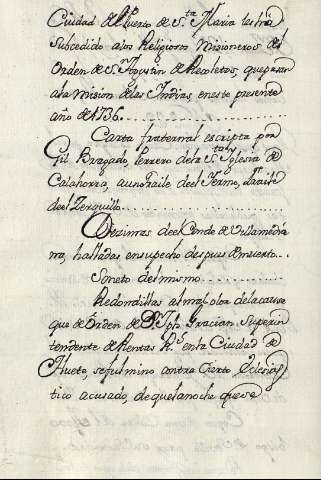 Ciudad de el Puerto de S.ta Maria les ha
Subcedido a los Religiosos Misioneros del
Orden de S.n Agustin de Recoletos, que pasan
a la Mision de las Indias, en este presente
año de 1736.
Carta fraternal escripta por
Gil Bragado Perrero de la S.ta Yglesia de
Calahorra, a un fraile de el Yermo, fraile
de el Zerquillo
Dezimas de el Conde de Villamedia
na, halladas en su pecho despues de muerto
Soneto del mismo
Redondillas al mal olor de la causa
que de Orden de D.n Jph. Gracian Superin
tendente de Rentas R.s en la Ciudad de
Huete, se fulmino contra Cierto Eclesias
tico acusado, de que la noche que se